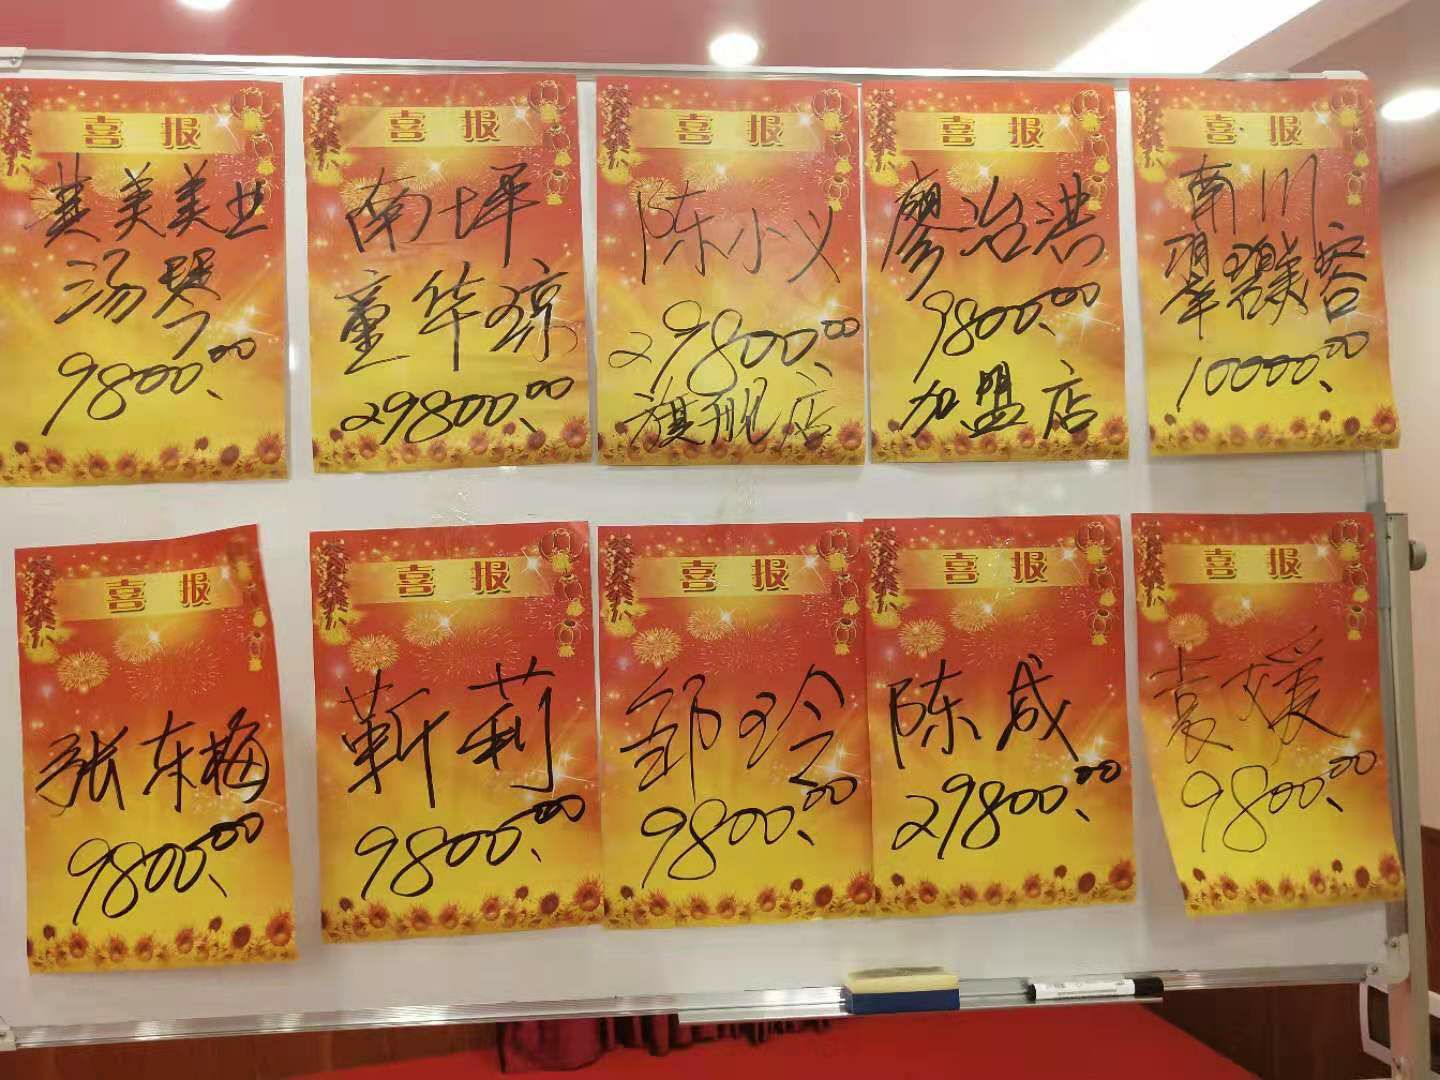 喜报
美美业
汤琴
9800.00
喜报
南坪
童华琼
29800.00
喜报
陈小义
29800.00
旗舰店
喜报
廖治洪
9800.00
加盟店
喜报
南川
美容
10000.00
喜报
张东梅
9800.00
喜报
靳莉
9800.00
喜报
邹玲
9800.00
喜报
陈成
29800.00
喜报
袁媛
9800.00